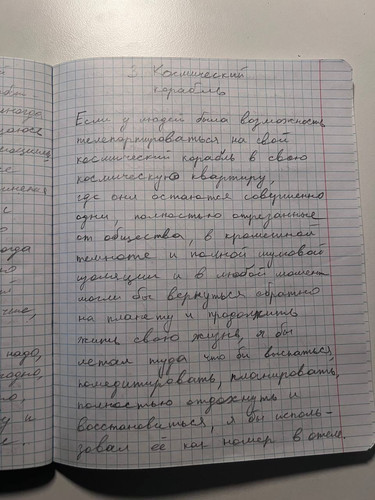 3. Космический
корабль
Если у людей была возможность
телепортироваться на свой
космический корабль в свою
космическую квартиру,
где они остаются совершенно
одни, полностью отрезанные
от общества, в кромешной
темноте и полной шумовой
изоляции и в любой момент
могли бы вернуться обратно
на планету и продолжить
жить свою жизнь, я бы
летал туда что бы выспаться,
помедитировать, планировать,
полностью отдохнуть и
восстановиться, я бы исполь-
зовал её как номер в отеле.
надо,